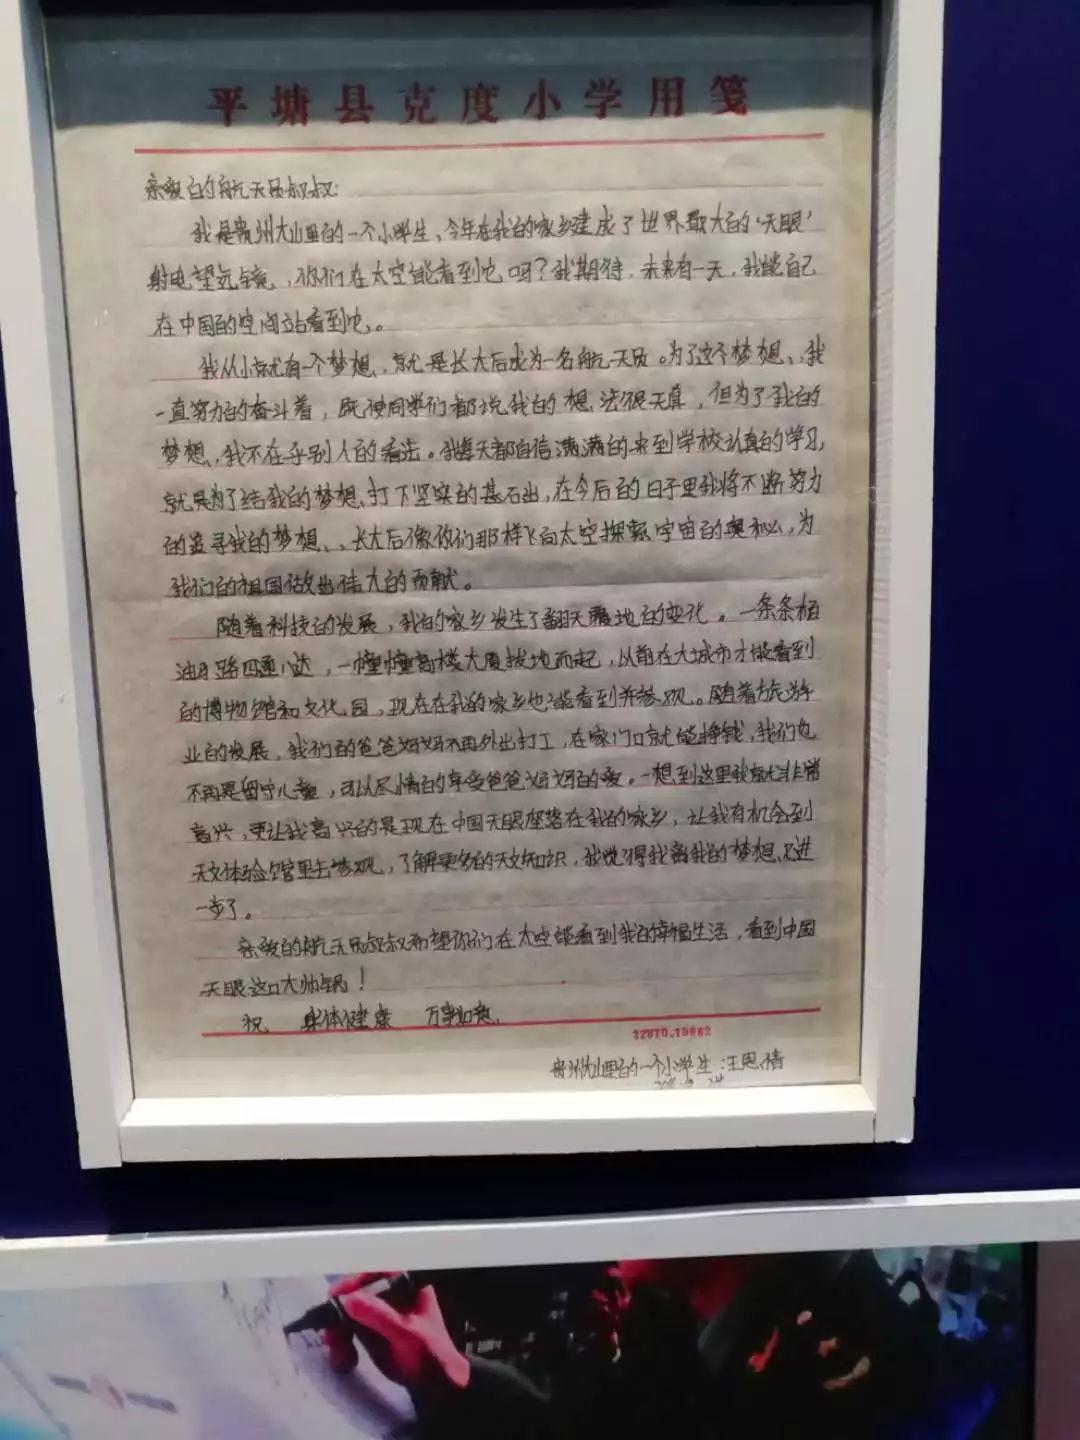 平塘县克度小学用笺
亲敬的航天员叔叔:
我是贵州大山里的一个小学生，今年在我的家乡建成了世界最大的'天眼'
射电望远镜，你们在太空能看到它吗？我期待，未来有一天，我能自己
在中国的空间站看到它。
我从小就有一个梦想，就是长大后成为一名航天员。为了这个梦想，我
一直努力的奋斗着，既使同学们都说我的想法很天真，但为了我的
梦想，我不在乎别人的看法。我每天都自信满满的来到学校认真的学习，
就是为了给我的梦想打下坚实的基石出，在今后的日子里我将不断努力
的追寻我的梦想，长大后像你们那样飞向太空探索宇宙的奥秘，为
我们的祖国做出伟大的贡献。
随着科技的发展，我的家乡发生了翻天覆地的变化。一条条柏
油马路四通八达，一幢幢高楼大厦拔地而起，以前在大城市才能看到
的博物馆和文化园，现在在我的家乡也能看到并参观。随着旅游
业的发展，我们的爸爸妈妈不再外出打工，在家门口就能挣钱，我们也
不再是留守儿童，可以尽情的享受爸爸妈妈的爱。一想到这里我就非常
高兴，更让我高兴的是现在中国天眼座落在我的家乡，让我有机会到
天文体验馆里去参观，了解更多的天文知识，我觉得我离我的梦想又进
一步了。
亲敬的航天员叔叔希望你们在太空能看到我的幸福生活，看到中国
天眼这口大帅锅！
祝 身体健康 万事如意
22810.19862
贵州大山里的一个小学生:汪恩倩